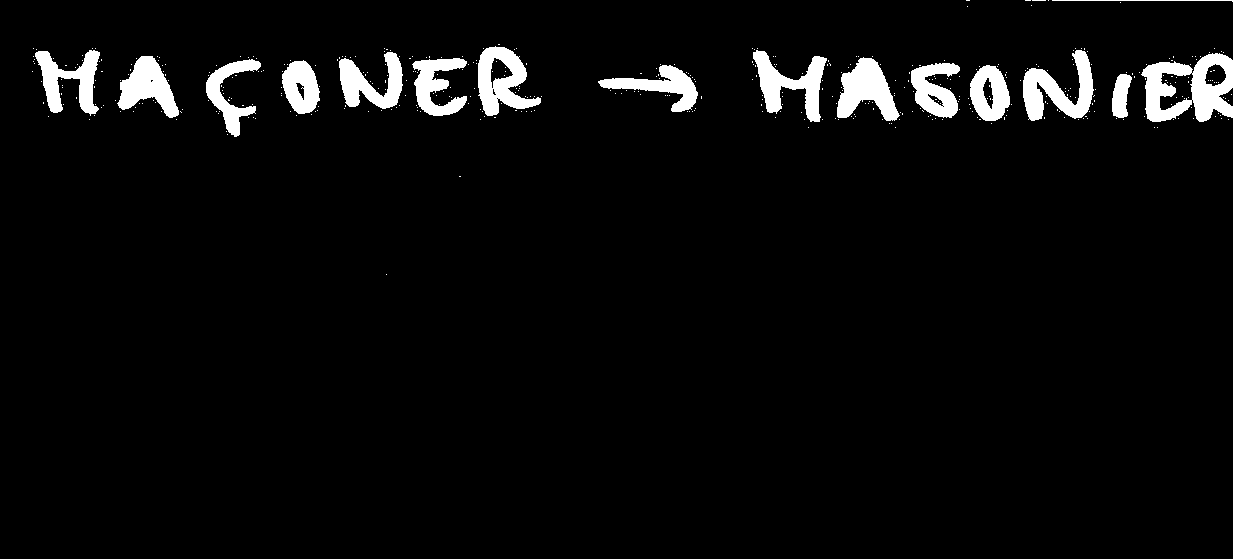 MAÇONER → MASONIER